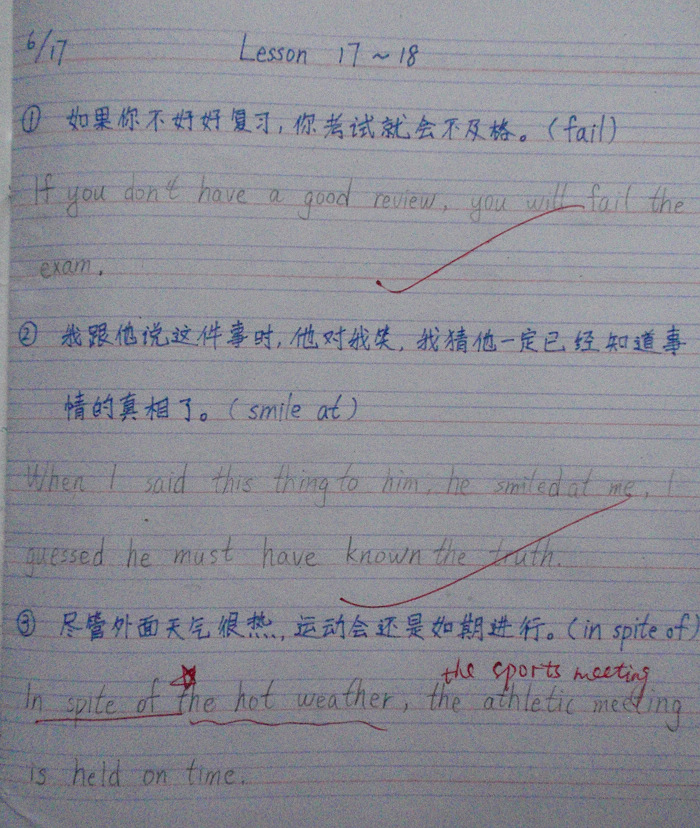 6/17 Lesson 17~18
① 如果你不好好复习,你考试就会不及格。(fail)
If you don't have a good review, you will fail the
exam.
② 我跟他说这件事时,他对我笑,我猜他一定已经知道事
情的真相了。(smile at)
When I said this thing to him, he smiled at me, I
guessed he must have known the truth.
③ 尽管外面天气很热,运动会还是如期进行。(in spite of)
the sports meeting
In spite of the hot weather, the athletic meeting
is held on time.